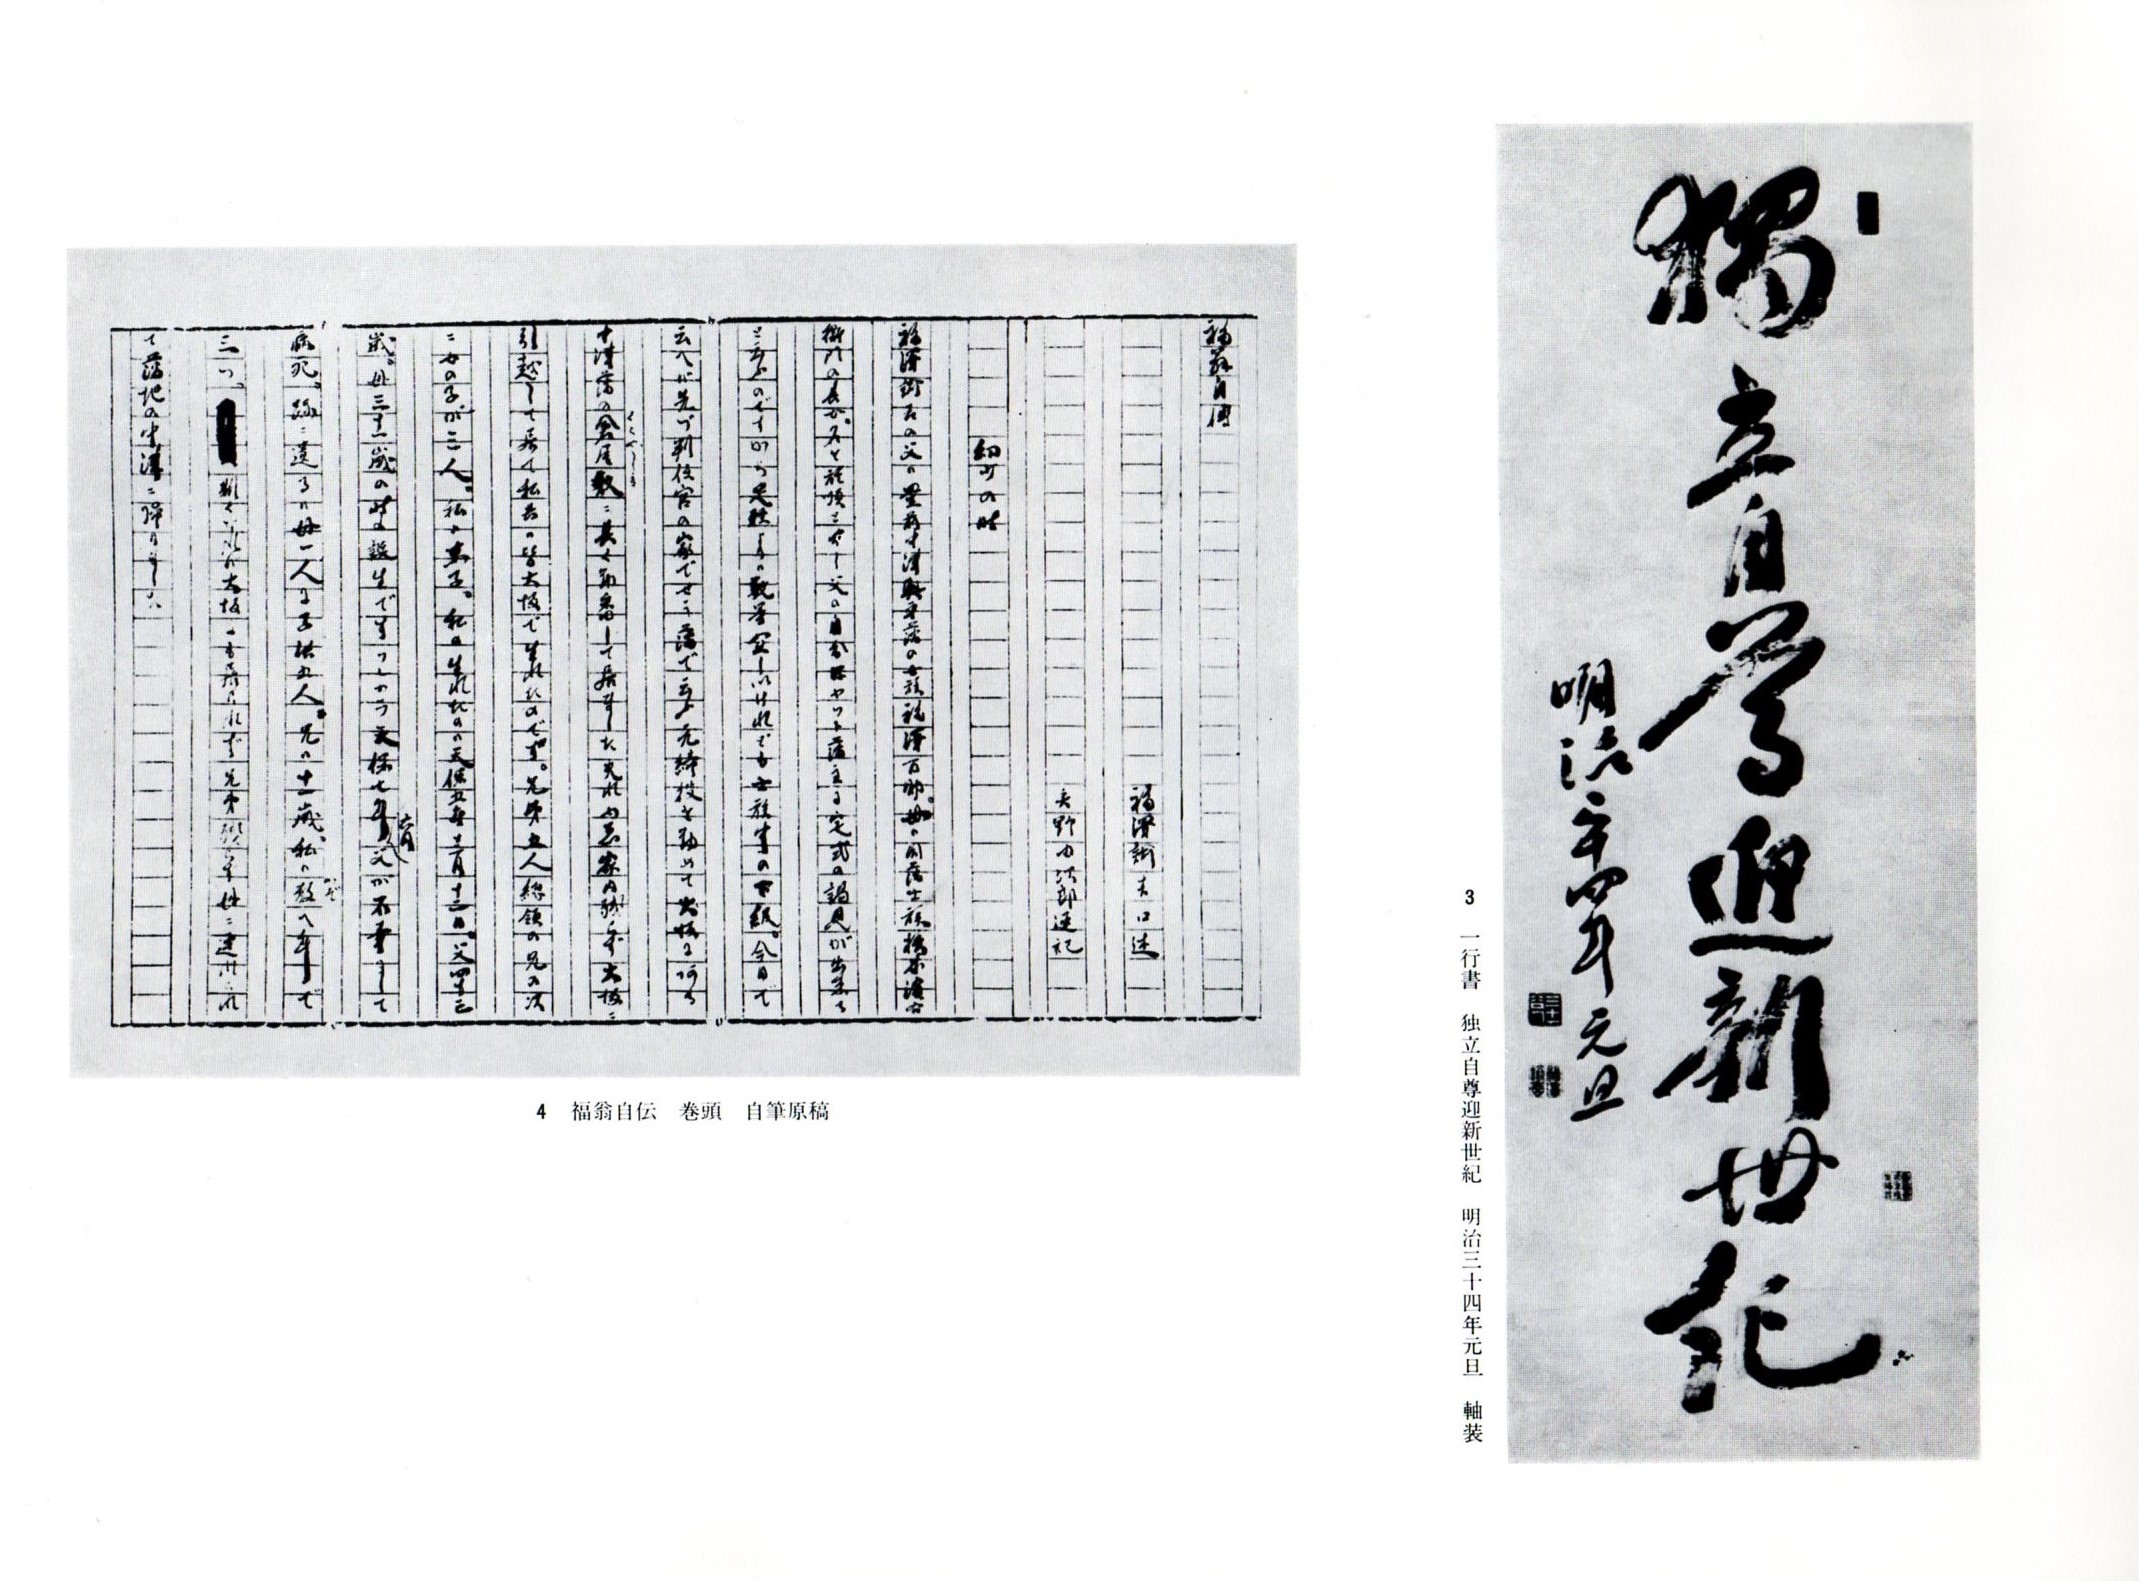 獨立自尊迎新世紀
明治三十四年元旦
3　一行書　独立自尊迎新世紀　明治三十四年元旦　軸装
福翁自傳
福澤諭吉口述
矢野由次郎速記
幼少の時
福澤諭吉の父ハ豊前中津奥平藩の士族福澤百助、母ハ同藩士族橋本濱右
衛門の長女、名を於順と申し父の身分ハヤツト藩主に定式の謁見が出来る
と云ふのですから足軽よりハ数等宜しいけれども士族中の下級。今日で
云へバ先づ判任官の家でせう藩で云ふ元締役を勤めて大坂にある
中津藩の倉屋敷ニ長く勤番して居ました夫れゆゑ家内残らず大坂ニ
くらやしき
引越して居て私共ハ皆大坂で生れたのです。兄弟五人総領の兄の次
ニ女の子が三人。私ハ末子。私の生れたのハ天保五年十二月十二日。父四十三
歳。母三十一歳の時の誕生です ソレカラ天保七年六月父が不幸にして
病死、跡ニ遺るハ母一人に子供五人。兄ハ十一歳、私ハ数へ年で
かぞ
三つ、斯くなれバ大坂ニも居られず兄弟残らず母ニ連れられ
て藩地の中津ニ帰りました
4　福翁自伝　巻頭　自筆原稿